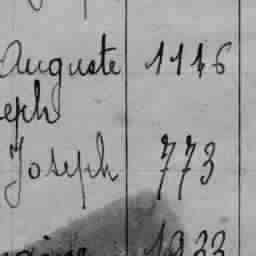 Auguste 1116
eph
Joseph 773
1933